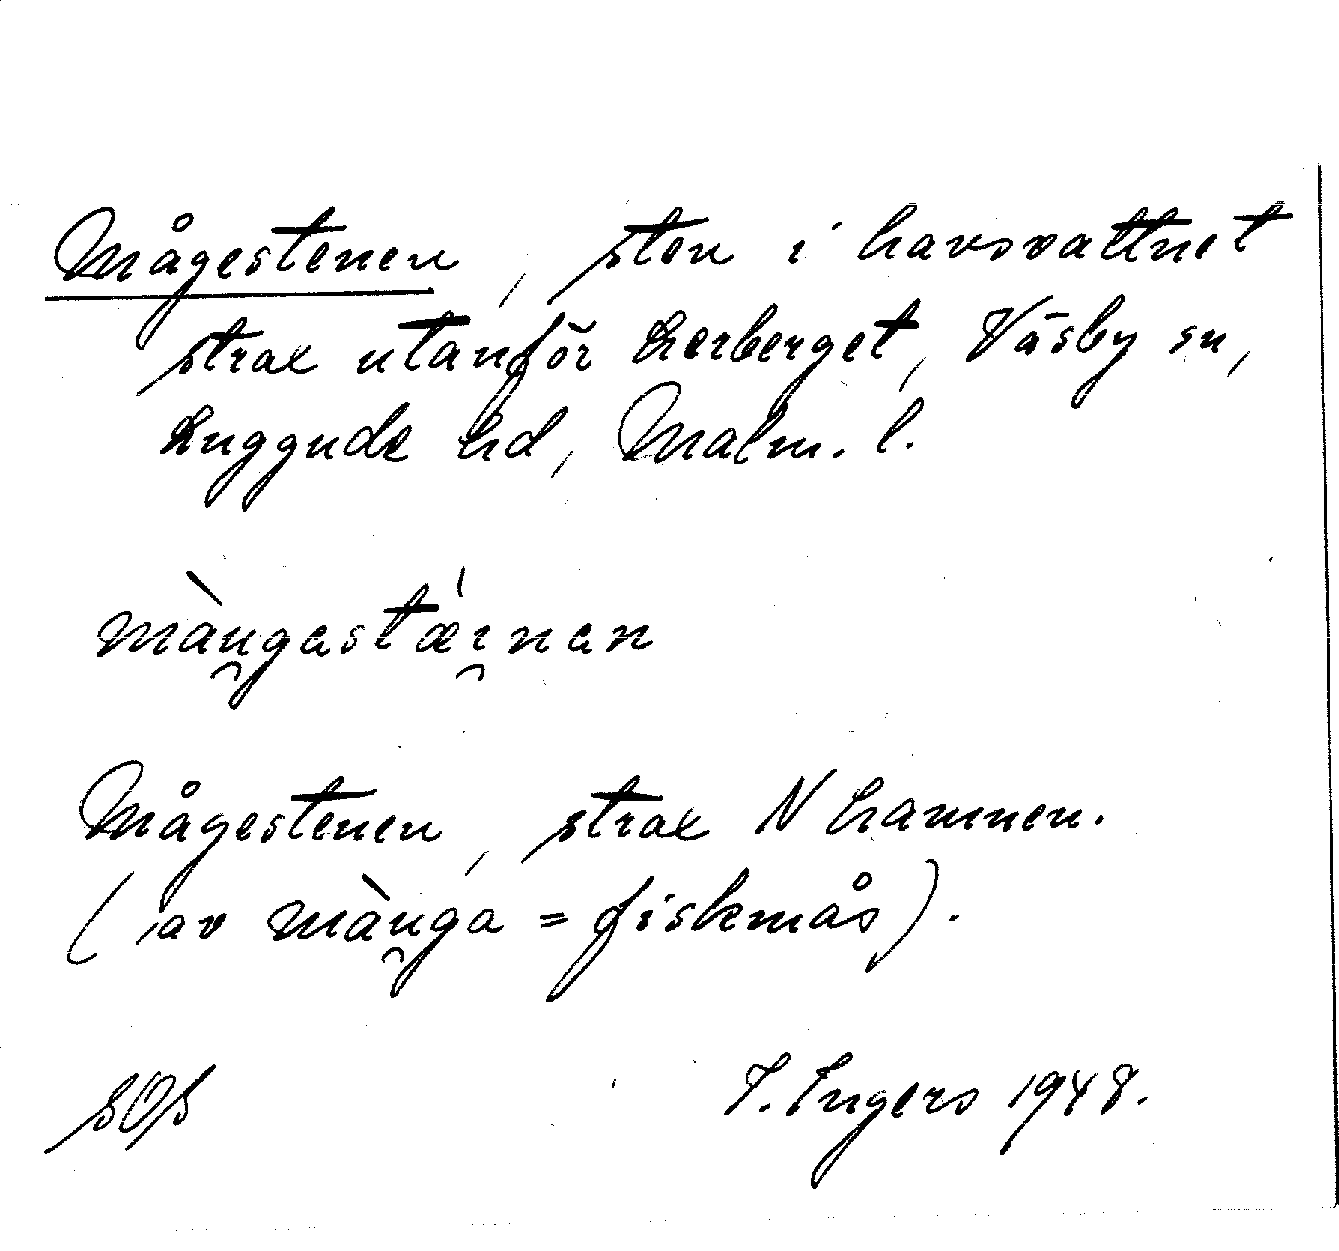 Mågestenen, sten i havsvattnet
strax utanför Lerberget, Väsby sn,
Luggude hd, Malm. l.
màu̯gastǽi̯nan
Mågestenen, strax N hamnen.
(av màu̯ga = fiskmås).
SOS I. Ingers 1948.